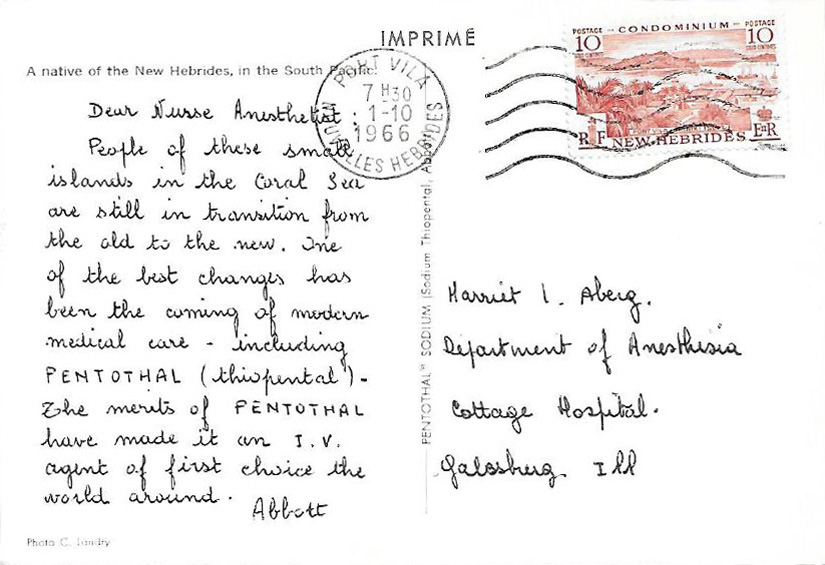 IMPRIMÉ
A native of the New Hebrides, in the South Pacific.
Dear Nurse Anesthetist:
People of these small
islands in the Coral Sea
are still in transition from
the old to the new. One
of the best changes has
been the coming of modern
medical care - including
PENTOTHAL (thiopental) -
The merits of PENTOTHAL
have made it an I.V.
agent of first choice the
world around.
Abbott
Photo C. Landry
PENTOTHAL® SODIUM (Sodium Thiopental, Abbott)
PORT VILA
7 H30
1-10
1966
NOUVELLES HEBRIDES
POSTAGE CONDOMINIUM POSTAGE
10 10
GOLD CENTIMES GOLD CENTIMES
RF NEW HEBRIDES EIIR
Harriet I. Aberg.
Department of Anesthesia
Cottage Hospital.
Galesburg Ill